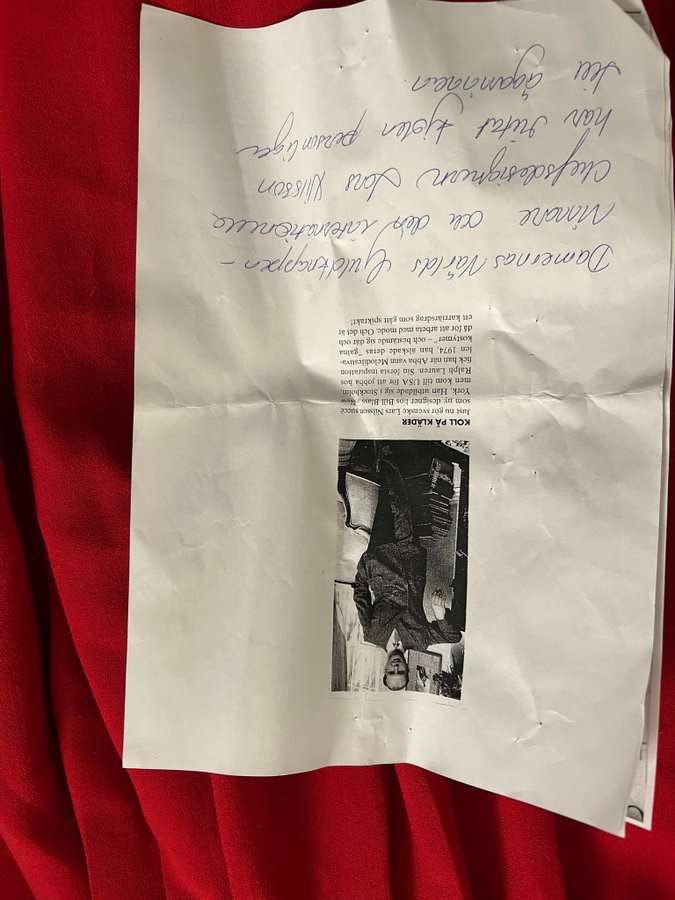 KOLL PÅ KLÄDER
Just nu gör svenske Lars Nilsson succé
som ny designer hos Bill Blass, New
York. Han utbildade sig i Stockholm,
men kom till USA för att jobba hos
Ralph Lauren. Sin första inspiration
fick han när Abba vann Melodifestiva-
len 1974, han älskade deras "galna
kostymer" – och bestämde sig där och
då för att arbeta med mode. Och det är
ett karriärsdrag som gått spikrakt!
Damernas Världs Guldknappen-
Vinnare och den internationella
Chefsdesignern Lars Nilsson
har ritat kjolen personligen
till ägarinnan.